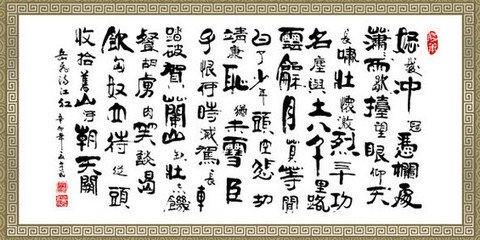 怒髮冲冠憑欄處
瀟雨歇擡望眼仰天
長嘯壯懷激烈三十功
名塵與土八千里路
雲龢月莫等閒
白了少年頭空悲切
靖康恥猶未雪臣
子恨何時滅駕長車
踏破賀蘭山缺壯士饑
餐胡虜肉笑談渴
飲匈奴血待從頭
收拾舊山河朝天闕
岳飛滿江紅 辛卯年